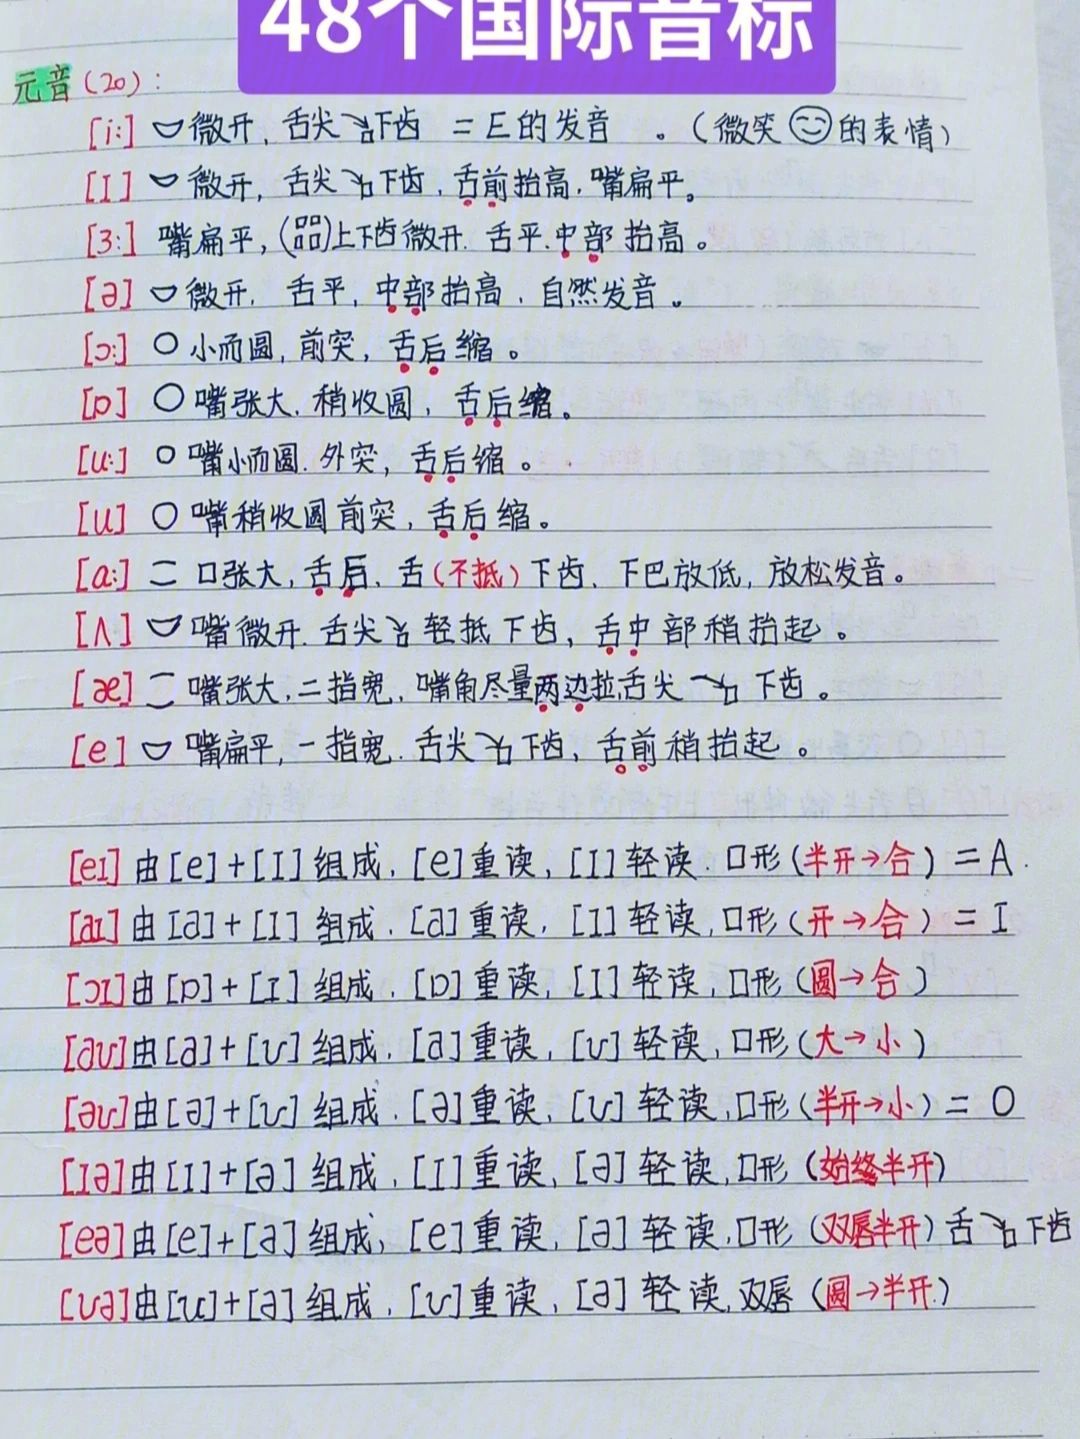 48个国际音标
元音(20):
[i:] 微开,舌尖下齿 =E的发音 。(微笑的表情)
[I] 微开,舌尖下齿,舌前抬高,嘴扁平。
[3:] 嘴扁平,(品)上下齿微开.舌平.中部抬高。
[ə] 微开.舌平,中部抬高.自然发音。
[ɔ:] 小而圆,前突,舌后缩。
[ɒ] 嘴张大.稍收圆.舌后缩。
[u:] 嘴小而圆.外突,舌后缩。
[u] 嘴稍收圆前突,舌后缩。
[a:] 口张大,舌后、舌(不抵)下齿.下巴放低,放松发音。
[ʌ] 嘴微开.舌尖轻抵下齿,舌中部稍抬起。
[æ] 嘴张大,二指宽,嘴角尽量两边拉,舌尖下齿。
[e] 嘴扁平,一指宽.舌尖下齿,舌前稍抬起。
[eɪ]由[e]+[I]组成.[e]重读,[I]轻读.口形(半开→合)=A.
[aɪ]由[a]+[I]组成.[a]重读,[I]轻读,口形(开→合)=I
[ɔɪ]由[ɒ]+[I]组成.[ɒ]重读,[I]轻读,口形(圆→合)
[aʊ]由[a]+[ʊ]组成.[a]重读,[ʊ]轻读,口形(大→小)
[əʊ]由[ə]+[ʊ]组成.[ə]重读,[ʊ]轻读,口形(半开→小)=O
[Iə]由[I]+[ə]组成.[I]重读,[ə]轻读,口形(始终半开)
[eə]由[e]+[ə]组成,[e]重读,[ə]轻读,口形(双唇半开)舌下齿
[ʊə]由[u]+[ə]组成.[ʊ]重读,[ə]轻读,双唇(圆→半开.)